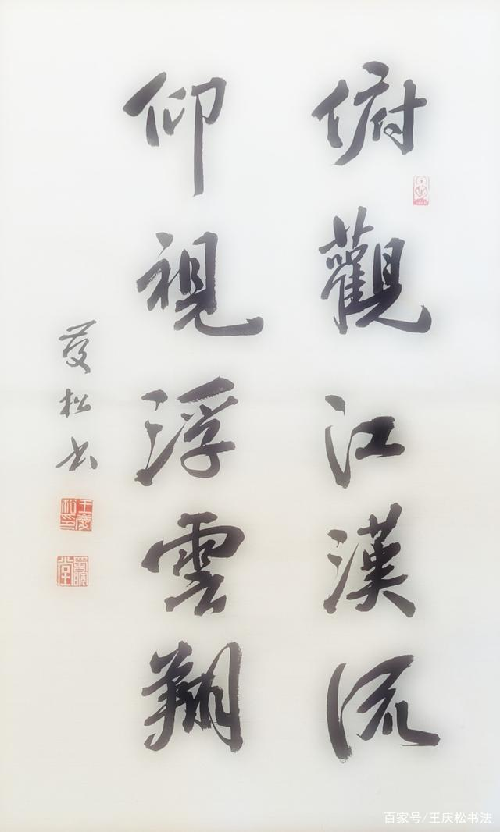 俯觀江漢流
仰視浮雲翔
慶松书
百家号/王庆松书法